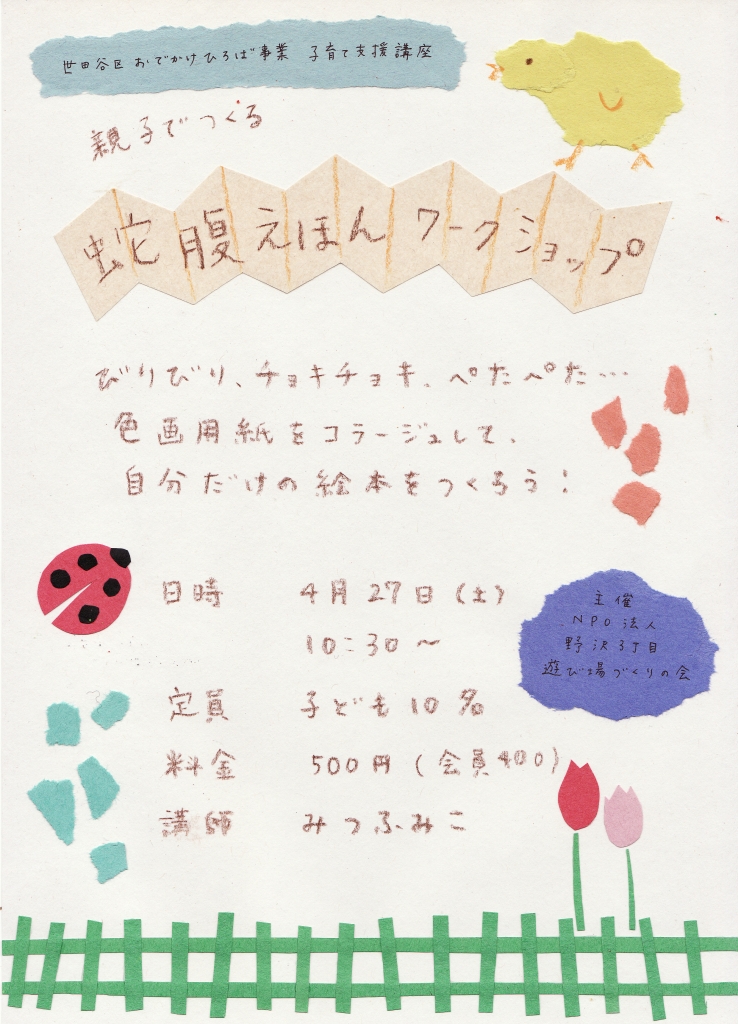 世田谷区おでかけひろば事業 子育て支援講座
親子でつくる
蛇腹えほんワークショップ
びりびり、チョキチョキ、ぺたぺた…
色画用紙をコラージュして、
自分だけの絵本をつくろう!
日時 4月27日(土)
10:30〜
定員 子ども10名
料金 500円(会員400)
講師 みつふみこ
主催
NPO法人
野沢3丁目
遊び場づくりの会